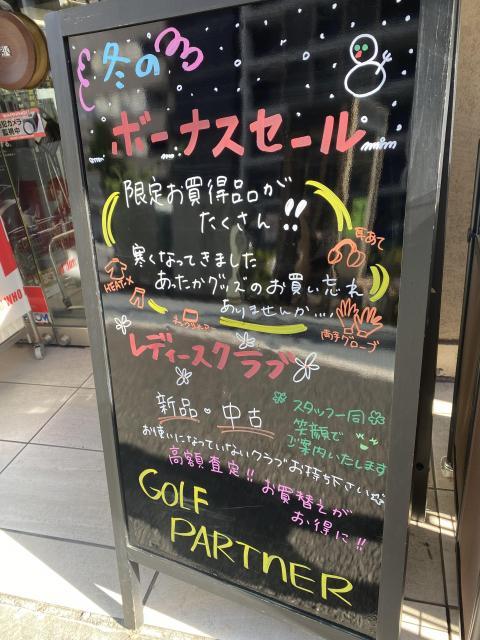 冬の
ボーナスセール
限定お買得品が
たくさん!!
耳あて
寒くなってきました
あったかグッズのお買い忘れ
ありませんか...
HEAT-X
両手グローブ
レディースクラブ
新品・中古
スタッフ一同
笑顔で
ご案内いたします
お使いになっていないクラブお持ち下さい
高額査定!! お買替えが
お得に!!
GOLF
PARTNER